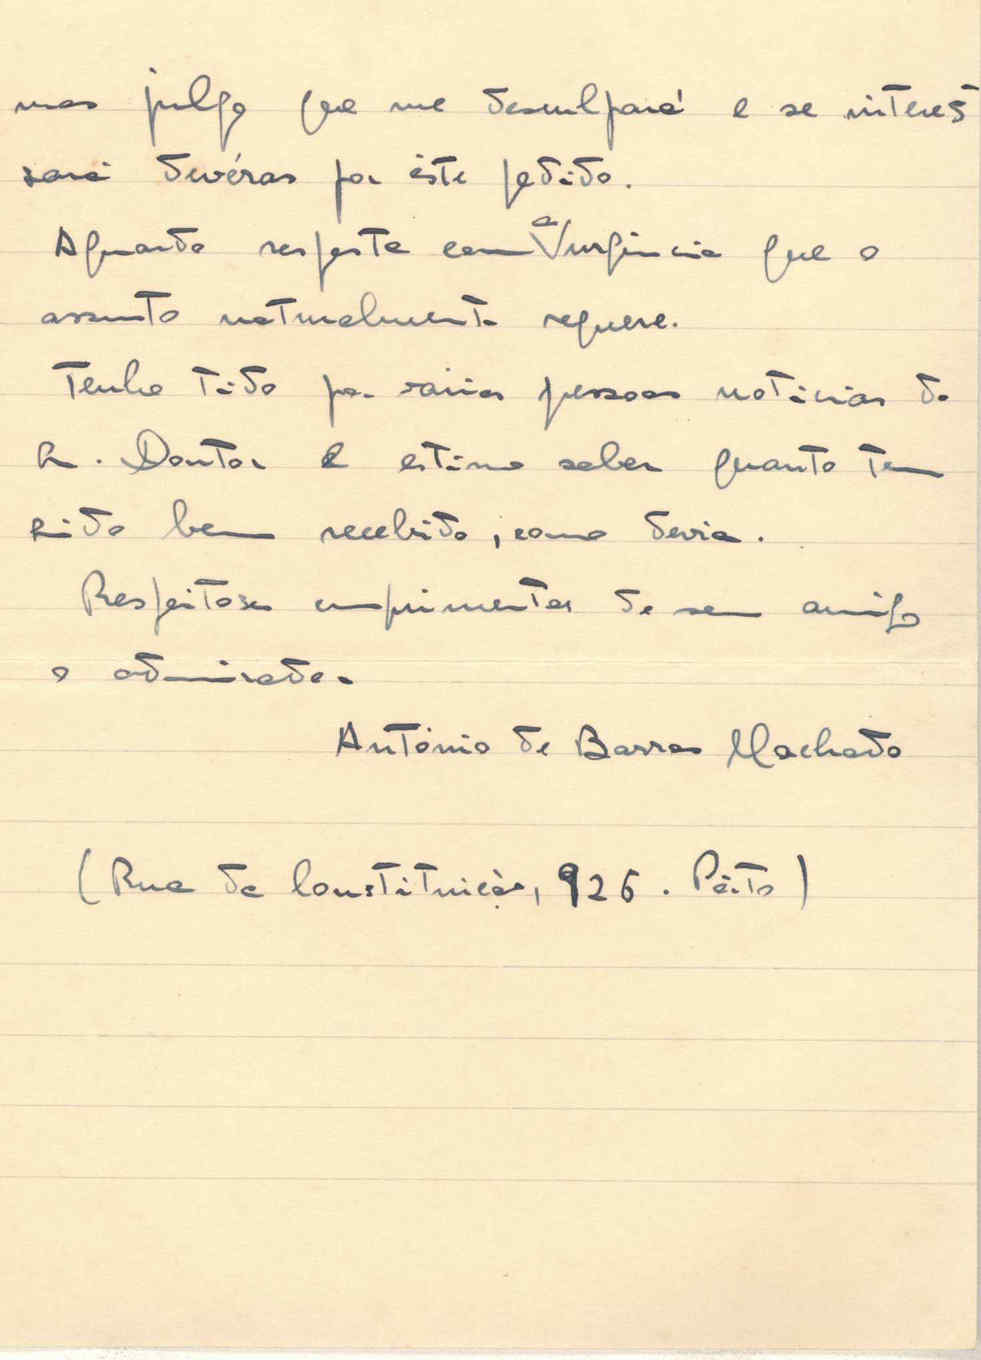 mas julgo que me desculpará e se interes
sará devéras por êste pedido.
Aguardo resposta com a urgência que o
assunto naturalmente requere.
Tenho tido por várias pessoas noticias do
Sr. Doutor e estimo saber quanto tem
sido bem recebido, como devia.
Respeitosos cumprimentos de seu amigo
e admirador
António de Barros Machado
(Rua da Constituição, 926. Pôrto)